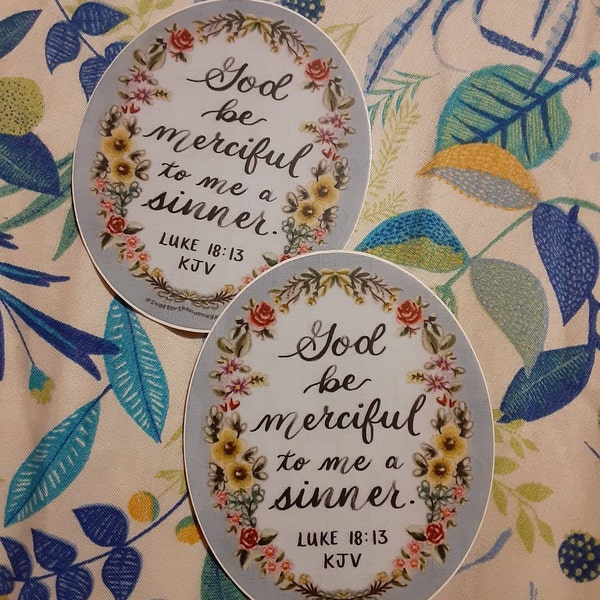 God
be
merciful
to me a
sinner.
LUKE 18:13
KJV
God
be
merciful
to me a
sinner.
LUKE 18:13
KJV